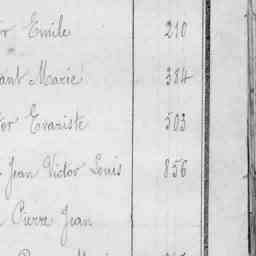 Emile 210
Marie 384
Evariste 503
Jean Victor Louis 856
Pierre Jean